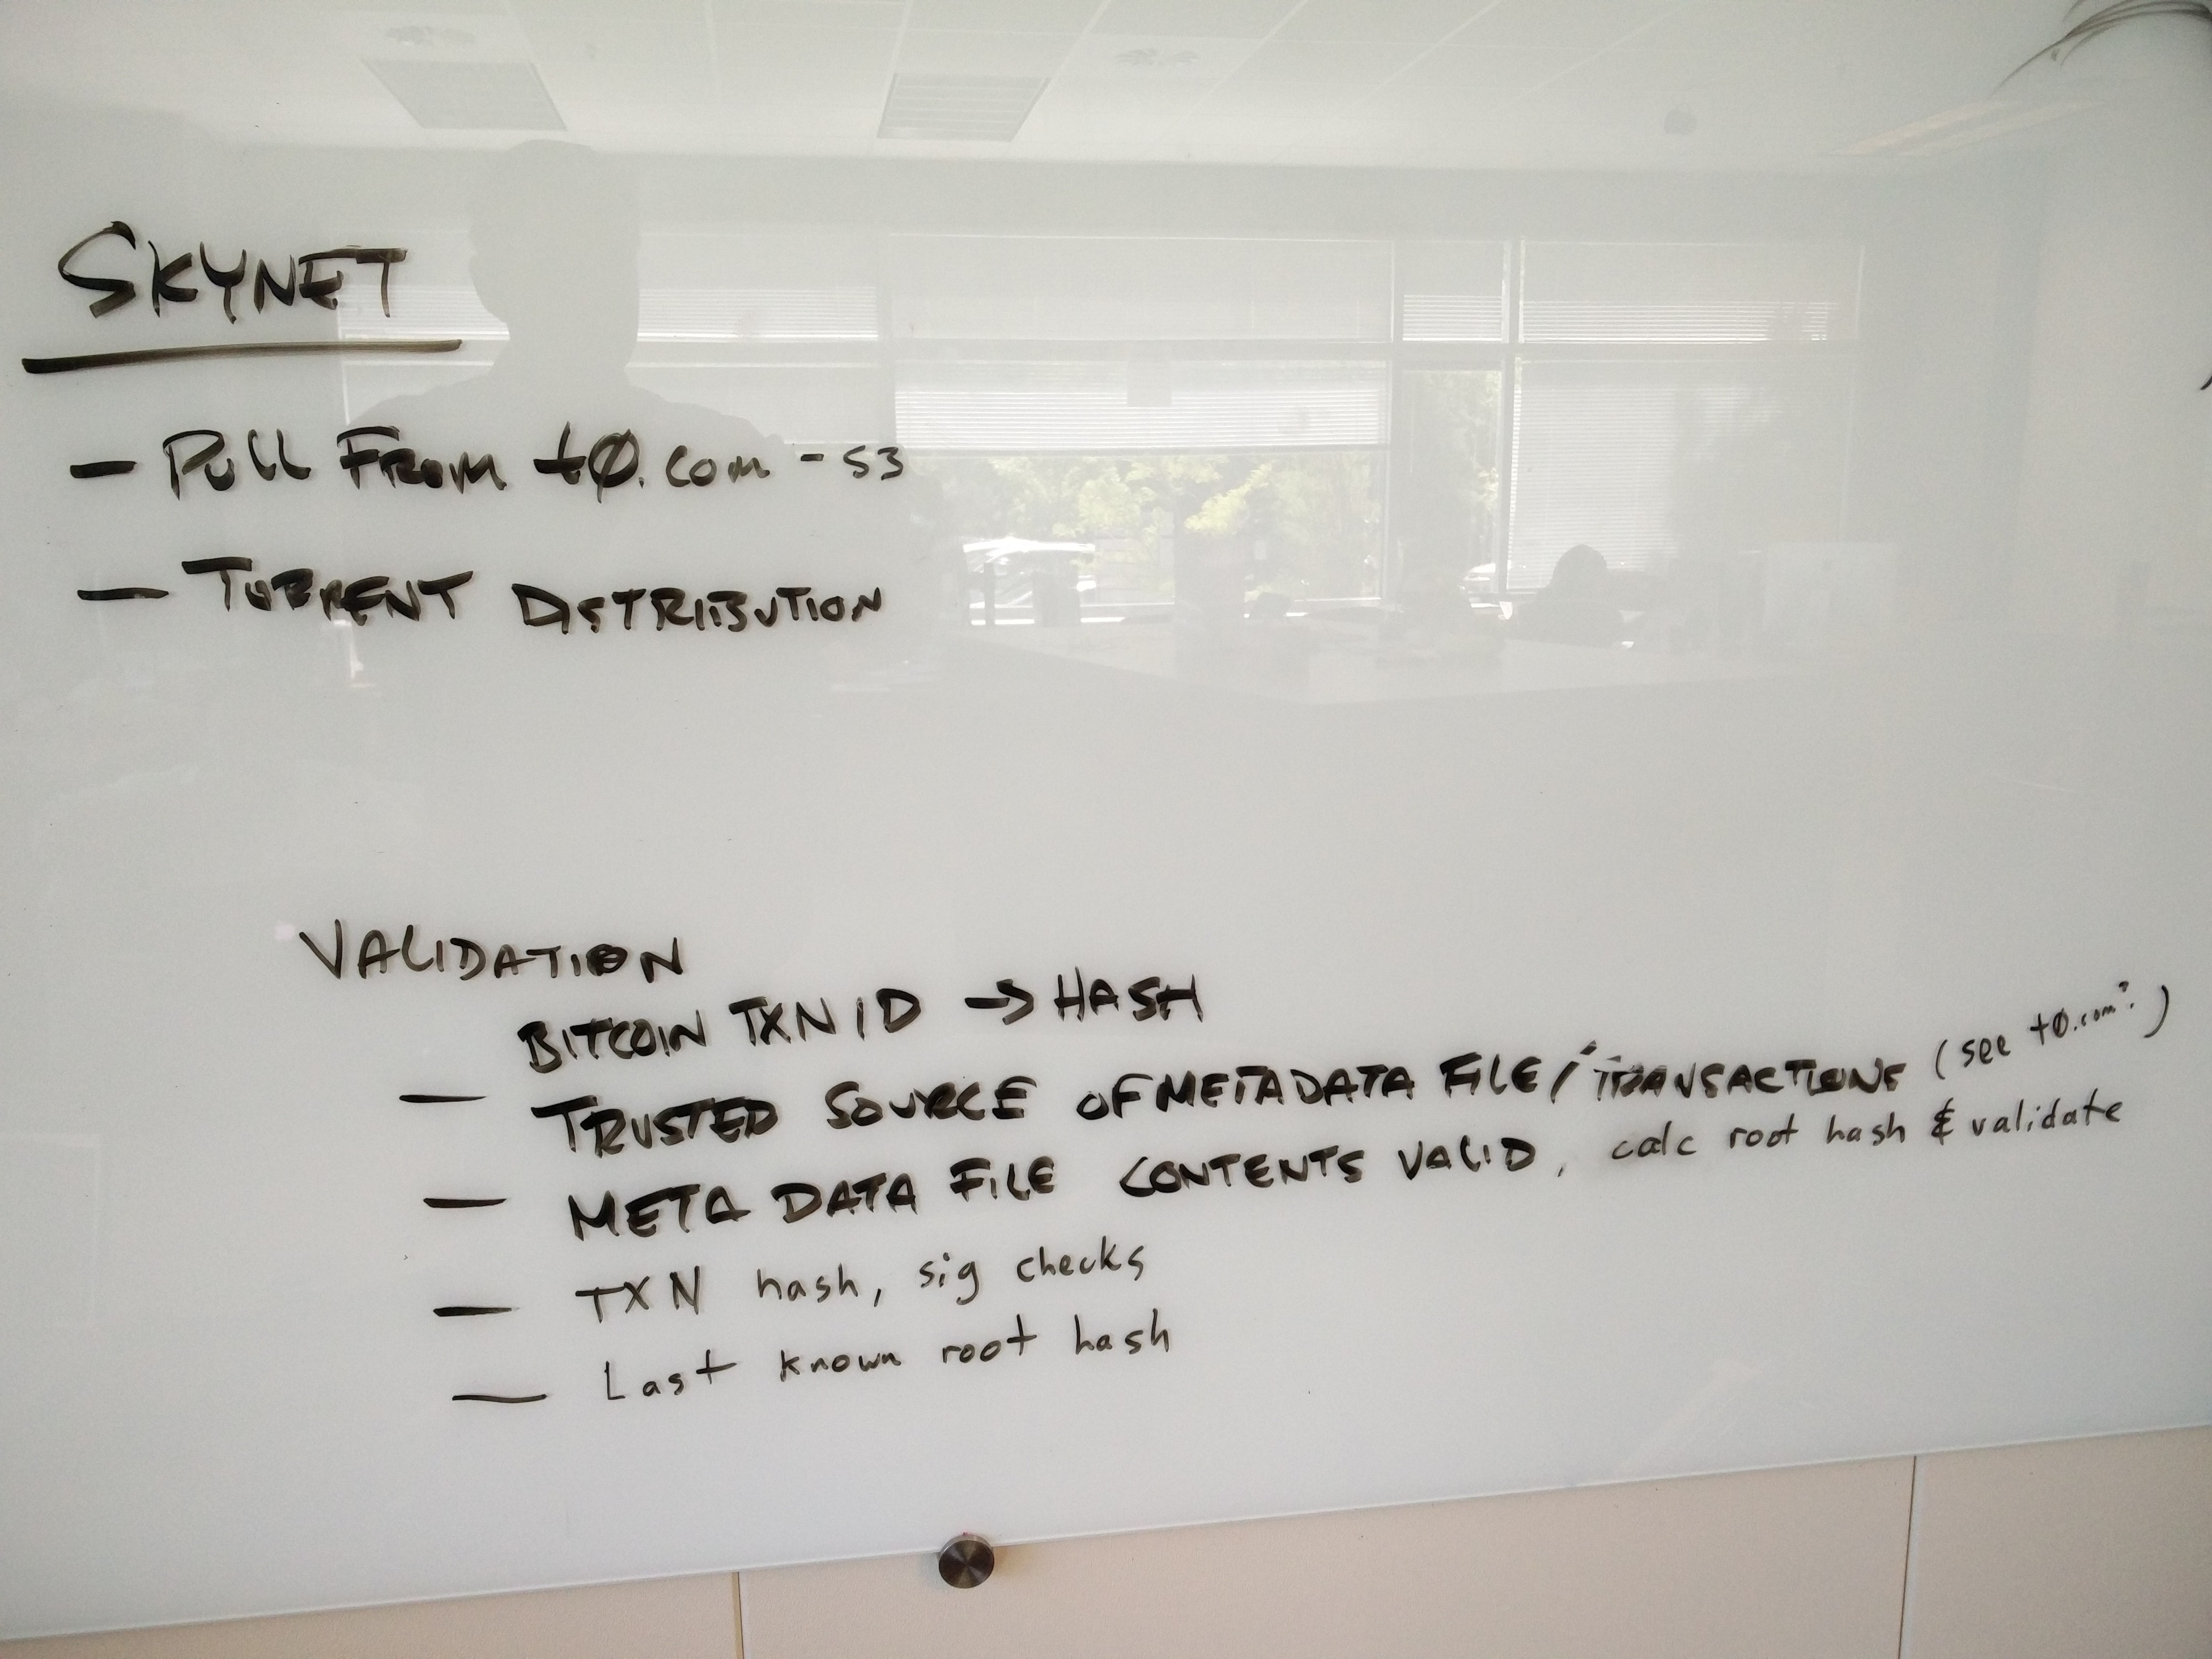 SKYNET
- PULL FROM t0.com - S3
- TORRENT DISTRIBUTION
VALIDATION
BITCOIN TXN ID → HASH
- TRUSTED SOURCE OF METADATA FILE / TRANSACTIONS (see t0.com?)
- META DATA FILE CONTENTS VALID, calc root hash & validate
- TXN hash, sig checks
- Last known root hash